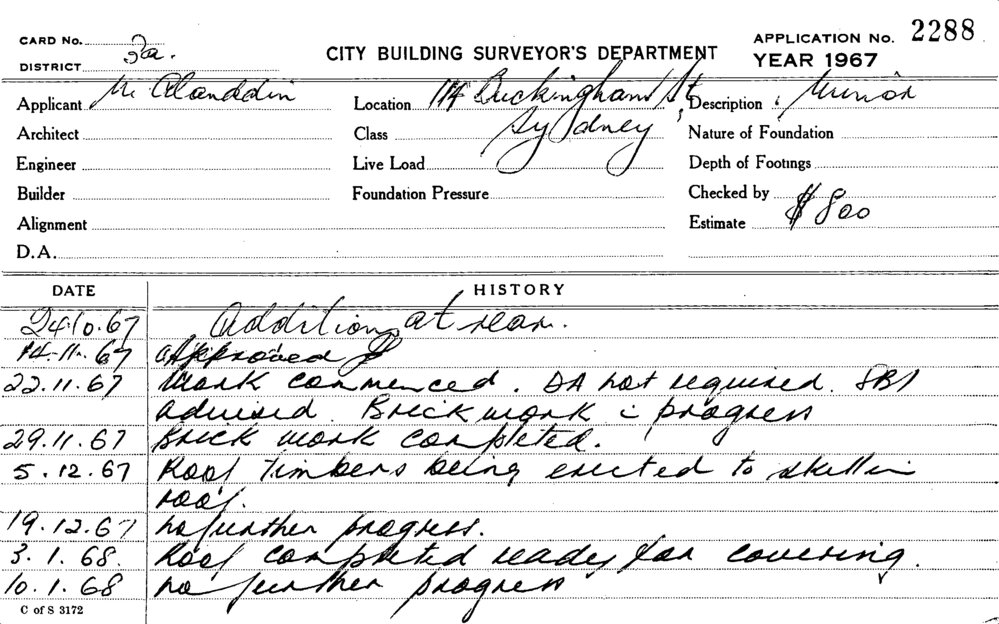 CARD No. 2a.
CITY BUILDING SURVEYOR'S DEPARTMENT
APPLICATION No. 2288
DISTRICT
YEAR 1967
Applicant M. Alanddin Location 114 Buckingham St Description Minor
Architect Class Sydney Nature of Foundation
Engineer Live Load Depth of Footings
Builder Foundation Pressure Checked by
Alignment Estimate $800
D.A.
DATE HISTORY
24.10.67 Addition at rear.
14.11.67 approved
22.11.67 Work commenced. DA not required. SBI
advised. Brick work i progress
29.11.67 Brick work completed.
5.12.67 Roof timbers being erected to skillin
roof.
19.12.67 no further progress.
3.1.68. Roof completed ready for covering.
10.1.68 no further progress
C of S 3172